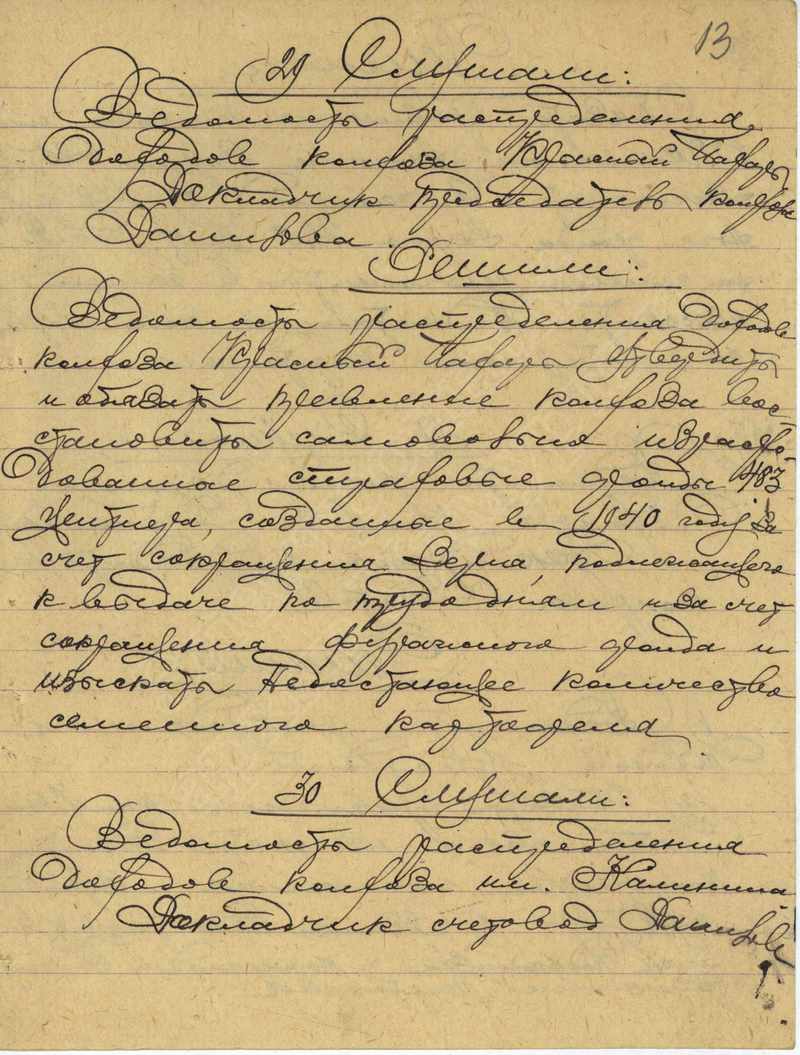 13
29 Слушали:
Ведомость распределения
доходов колхоза Красный Пахарь
Докладчик председатель колхоза
Данилова.
Решили:
Ведомость распределения доходов
колхоза Красный Пахарь утвердить
и обязать правление колхоза вос-
становить самовольно израсхо-
дованные страховые фонды 483
центнера, созданные в 1940 году за
счет сокращения зерна, подлежащего
к выдаче по трудодням и за счет
сокращения фуражного фонда и
изыскать недостающее количество
семенного картофеля
30 Слушали:
Ведомость распределения
доходов колхоза им. Калинина
Докладчик счетовод